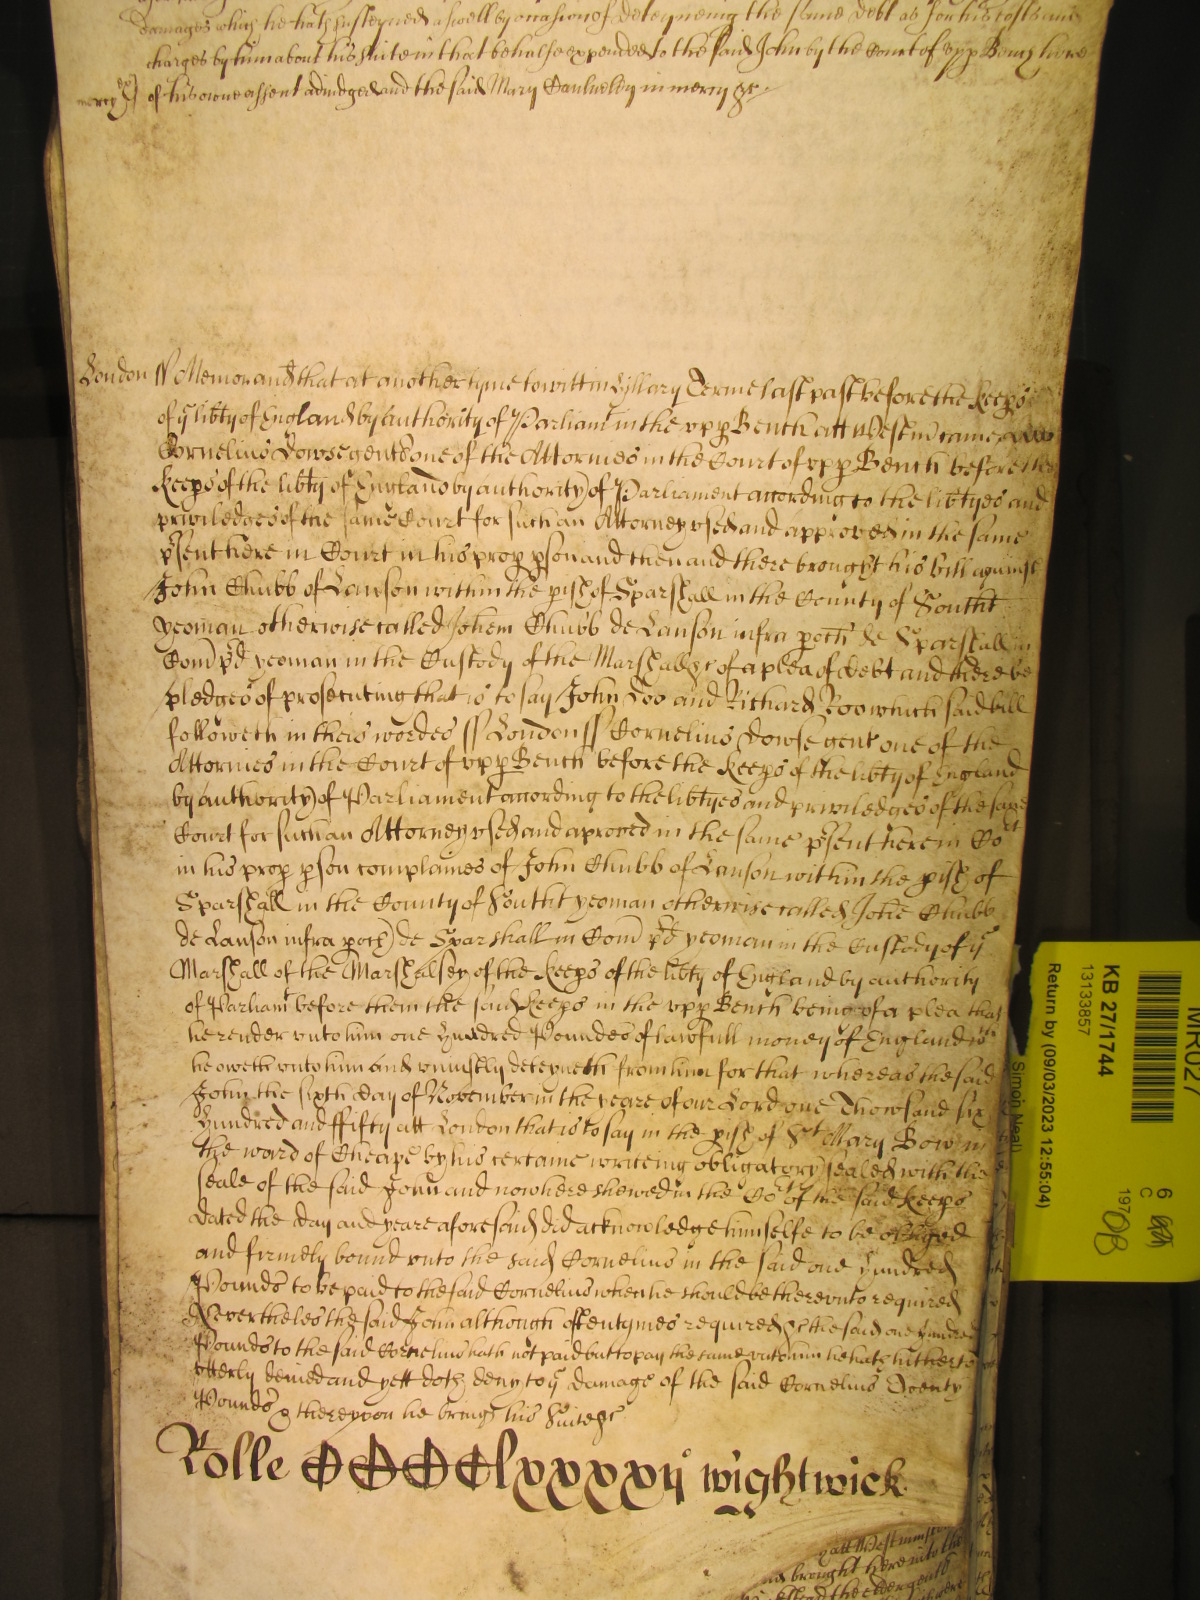 damages which he hath susteyned aswell by occasion of deteyneing the same debt as for his costs and
charges by him about his suite in that behalfe expended to the said John by the Court of vpp Bench here
mercy of his owne assent adiudged and the said Mary in mercy &c
London ss Memorand that at another tyme to witt in Hillary Terme last past before the Keeps
of ye libty of England by authority of Parliamt in the vpp Bench att Westm came
Cornelius Dowse gent one of the Attornies in the Court of vpp Bench before the
Keeps of the libty of England by authority of Parliament according to the libtyes and
priviledges of the same Court for such an Attorney vsed and approved in the same
psent here in Court in his prop pson and then and there brought his bill against
John Chubb of Lanson within the pish of Sparshall in the County of Southt
yeoman otherwise called Johem Chubb de Lanson infra poch de Sparshall in
Com pd yeoman in the Custody of the Marshall &c of a plea of debt and there be
pledges of prosecuting that is to say John Doo and Richard Roo which said bill
followeth in theis wordes ss London ss Cornelius Dowse gent one of the
Attornies in the Court of vpp Bench before the Keeps of the libty of England
by authority of Parliament according to the libtyes and priviledges of the same
Court for such an Attorney vsed and aproved in the same psent here in Cort
in his prop pson complaines of John Chubb of Lanson within the pish of
Sparshall in the County of Southt yeoman otherwise called Johe Chubb
de Lanson infra poch de Sparshall in Com pd yeoman in the Custody of ye
Marshall of the Marshalsey of the Keeps of the libty of England by authority
of Parliamt before them the said Keeps in the vpp Bench being of a plea that
he render vnto him one hundred Poundes of lawfull money of England wch
he oweth vnto him and vniustly deteyneth from him for that whereas the said
John the sixth day of November in the yeare of our Lord one Thowsand six
hundred and ffifty att London that is to say in the pish of St Mary Bow in
the ward of Cheape by his certaine writeing obligatory sealed with the
seale of the said John and now here shewed in the Cort of the said Keeps
dated the day and yeare aforesaid did acknowledge himselfe to be obliged
and firmely bound vnto the said Cornelius in the said one hundred
Pounds to be paid to the said Cornelius when he should be therevnto required
Neverthelesthe said John although oftentymes required &c the said one hundred
Pounds to the said Cornelius hath not paid but to pay the same vnto him he hath hitherto
vtterly denied and yett doth deny to ye damage of the said Cornelius Twenty
Pounds & therevpon he brings his suite &c
Rolle CCCClxxxxvij wightwick
att Westminster
brought here into the
MR027
KB 27/1744
13133857
Return by (09/03/2023 12:55:04)
Simon Neal
6
C
197